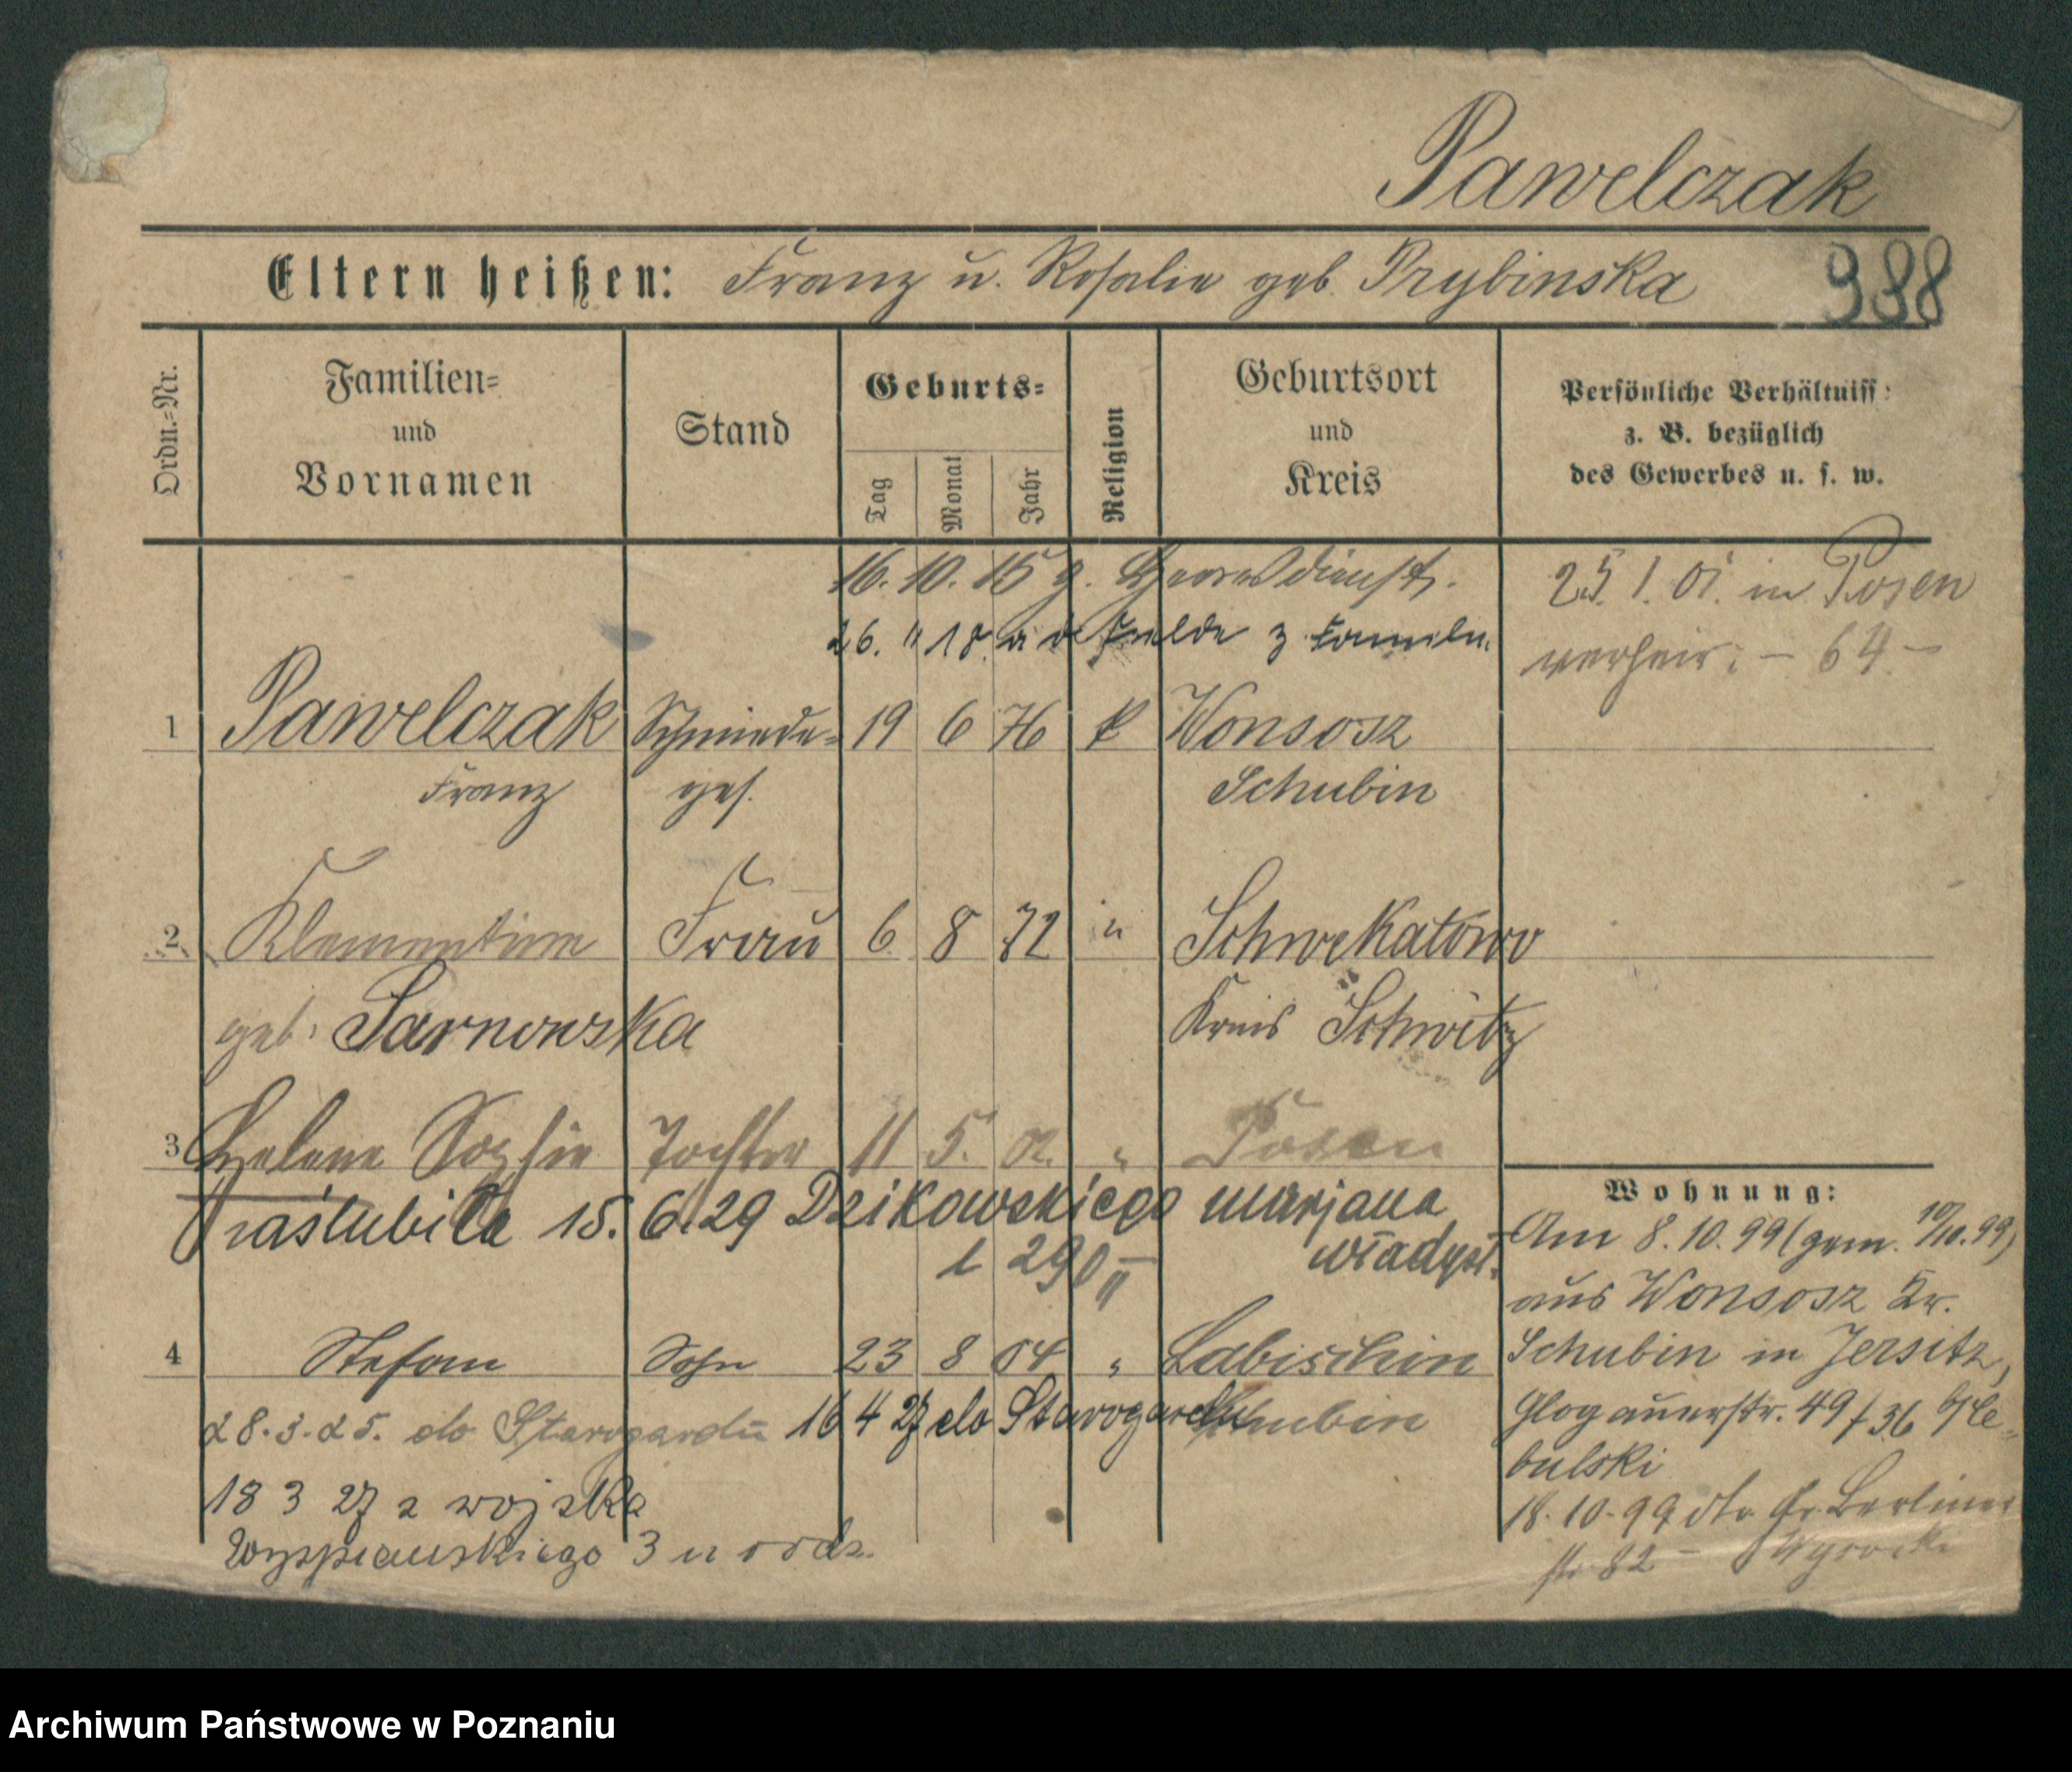 Pawelczak
Eltern heißen: Franz u. Rosalie geb. Przybinska
988
Ordn.=Nr.
Familien=
und
Vornamen
Stand
Geburts=
Tag
Monat
Jahr
Religion
Geburtsort
und
Kreis
Persönliche Verhältniss
z. B. bezüglich
des Gewerbes u. s. w.
16. 10. 15 z. Heeresdienst.
26. " 18 a d Felde z Familie.
25. 1. 01. in Posen
verheir. – 64 –
1 Pawelczak Schmiede= 19 6 76 k Wonsosz
Franz ges. Schubin
2 Klementine Frau 6 8 72 " Schwekatowo
geb. Sarnowska Kreis Schwetz
3 Helene Sophie Tochter 11 5. 02. " Posen
zaślubiła 15. 6. 29 Dzikowskiego Marjana
Władysł.
4 Stefan Sohn 23 8 04 " Labischin
Schubin
28.3.25. do Starogardu 16 4 27 do Starogardu
18 3 27 z wojska
Wyspiańskiego 3
Wohnung:
Am 8.10.99 (gem. 10/10.99)
aus Wonsosz Kr.
Schubin in Jersitz,
Glogauerstr. 49 / 36
bulski
18.10.99 dto Gr. Berliner
str 82 –
Archiwum Państwowe w Poznaniu